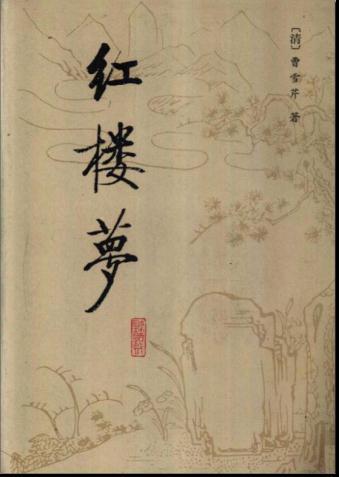 [清]曹雪芹 著
红楼夢